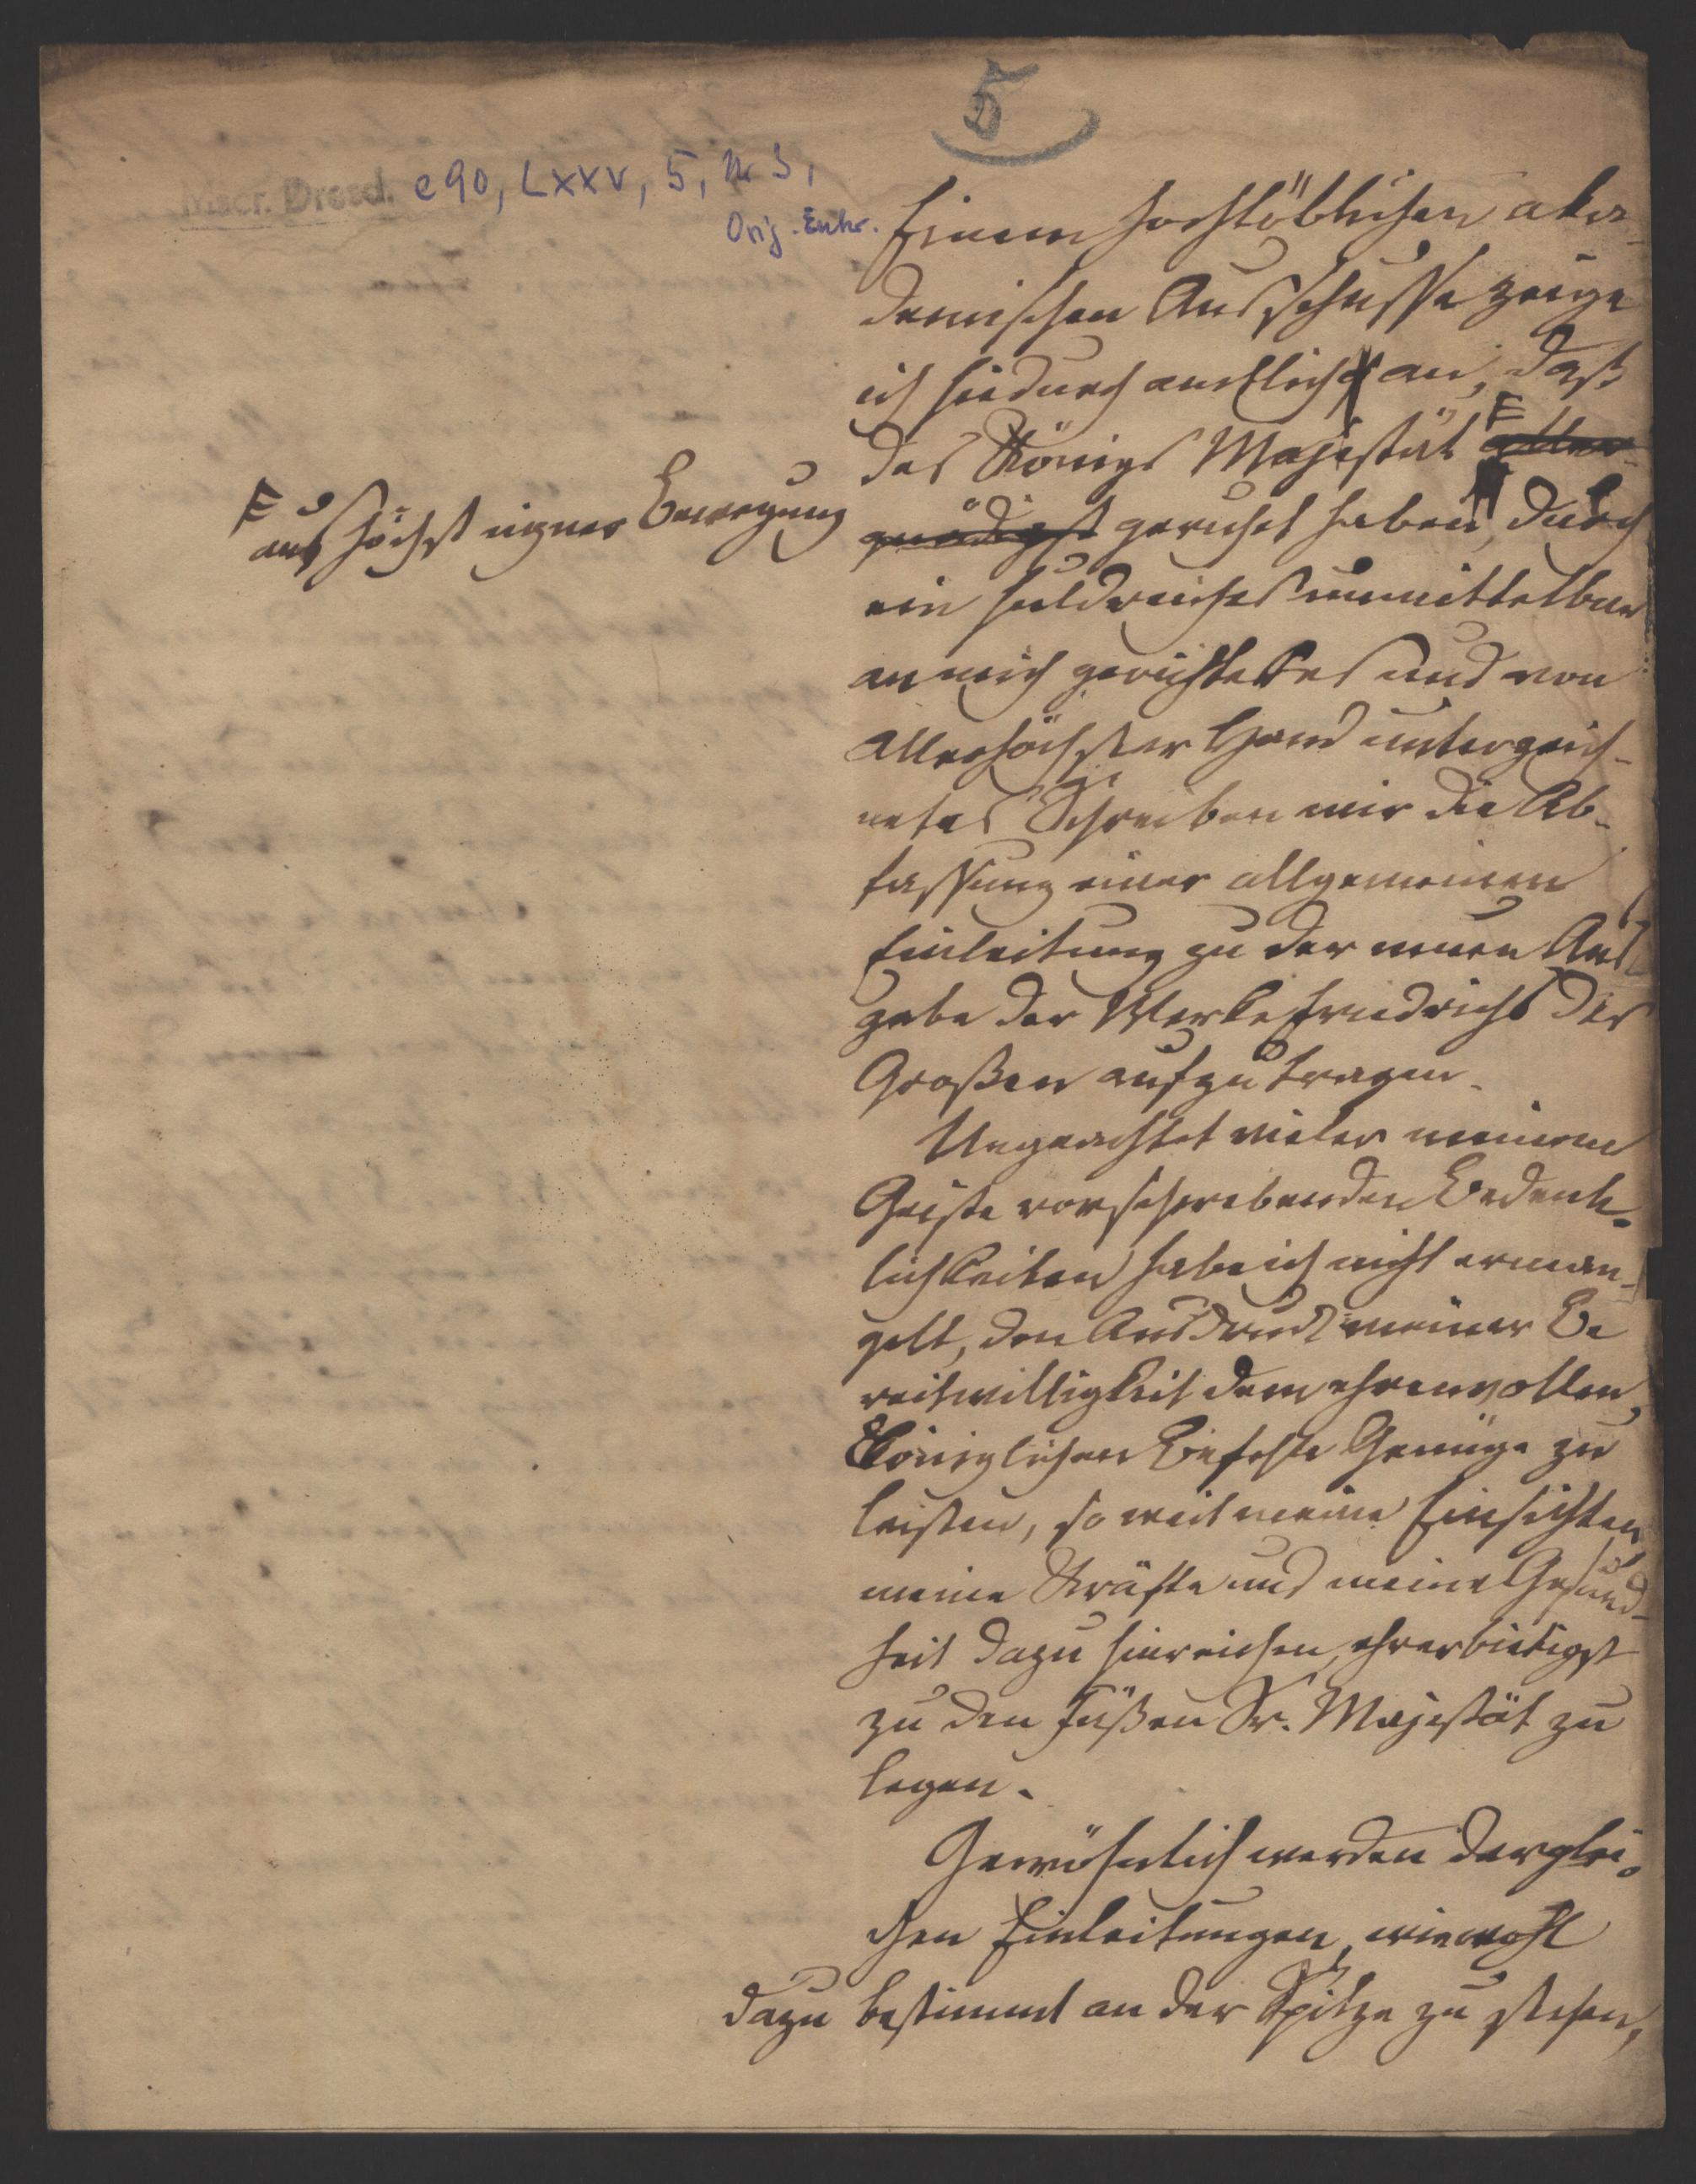 5
Mscr. Dresd. e 90, LXXV, 5, Nr 3,
Orig. Entw.
Einem hochlöblichen aka-
demischen Ausschusse zeige
ich hiedurch amtlich an, daß
des Königs Majestät aller-
gnädigst geruhet haben, durch
F aus höchst eigner Bewegung
ein huldreiches unmittelbar
an mich gerichtetes und von
Allerhöchster Hand unterzeich-
netes Schreiben mir die Ab-
fassung einer allgemeinen
Einleitung zu der neuen Aus-
gabe der Werke Friedrichs des
Großen aufzutragen.
Ungeachtet vieler meinem
Geiste vorschwebenden Bedenk-
lichkeiten habe ich nicht erman-
gelt, den Ausdruck meiner Be
reitwilligkeit dem ehrenvollen,
Königlichen Befehle Genüge zu
leisten, so weit meine Einsichten
meine Kräfte und meine Gesund-
heit dazu hinreichen, ehrerbietigst
zu den Füßen Sr. Majestät zu
legen.
Gewöhnlich werden derglei-
chen Einleitungen, wiewohl
dazu bestimmt an der Spitze zu stehen,